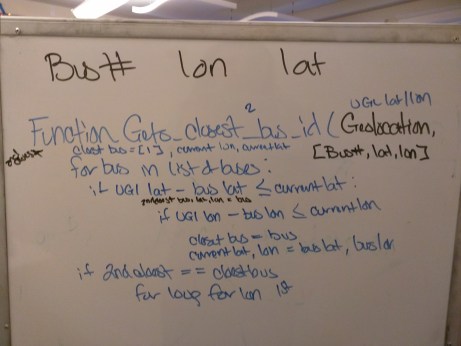 Bus# lon lat
UGL lat/lon
Function Gets_closest_2_bus_id (Geolocation,
[Bus#, lat, lon]
closest bus = [1], current lon, current lat
for bus in list of buses:
if UGI lat - bus lat ≤ current lat:
bus, lat, lon = bus
if UGI lon - bus lon ≤ current lon
closest bus = bus
current lat, lon = bus lat, bus lon
if 2nd closest == closest bus
for loop for lon 1st